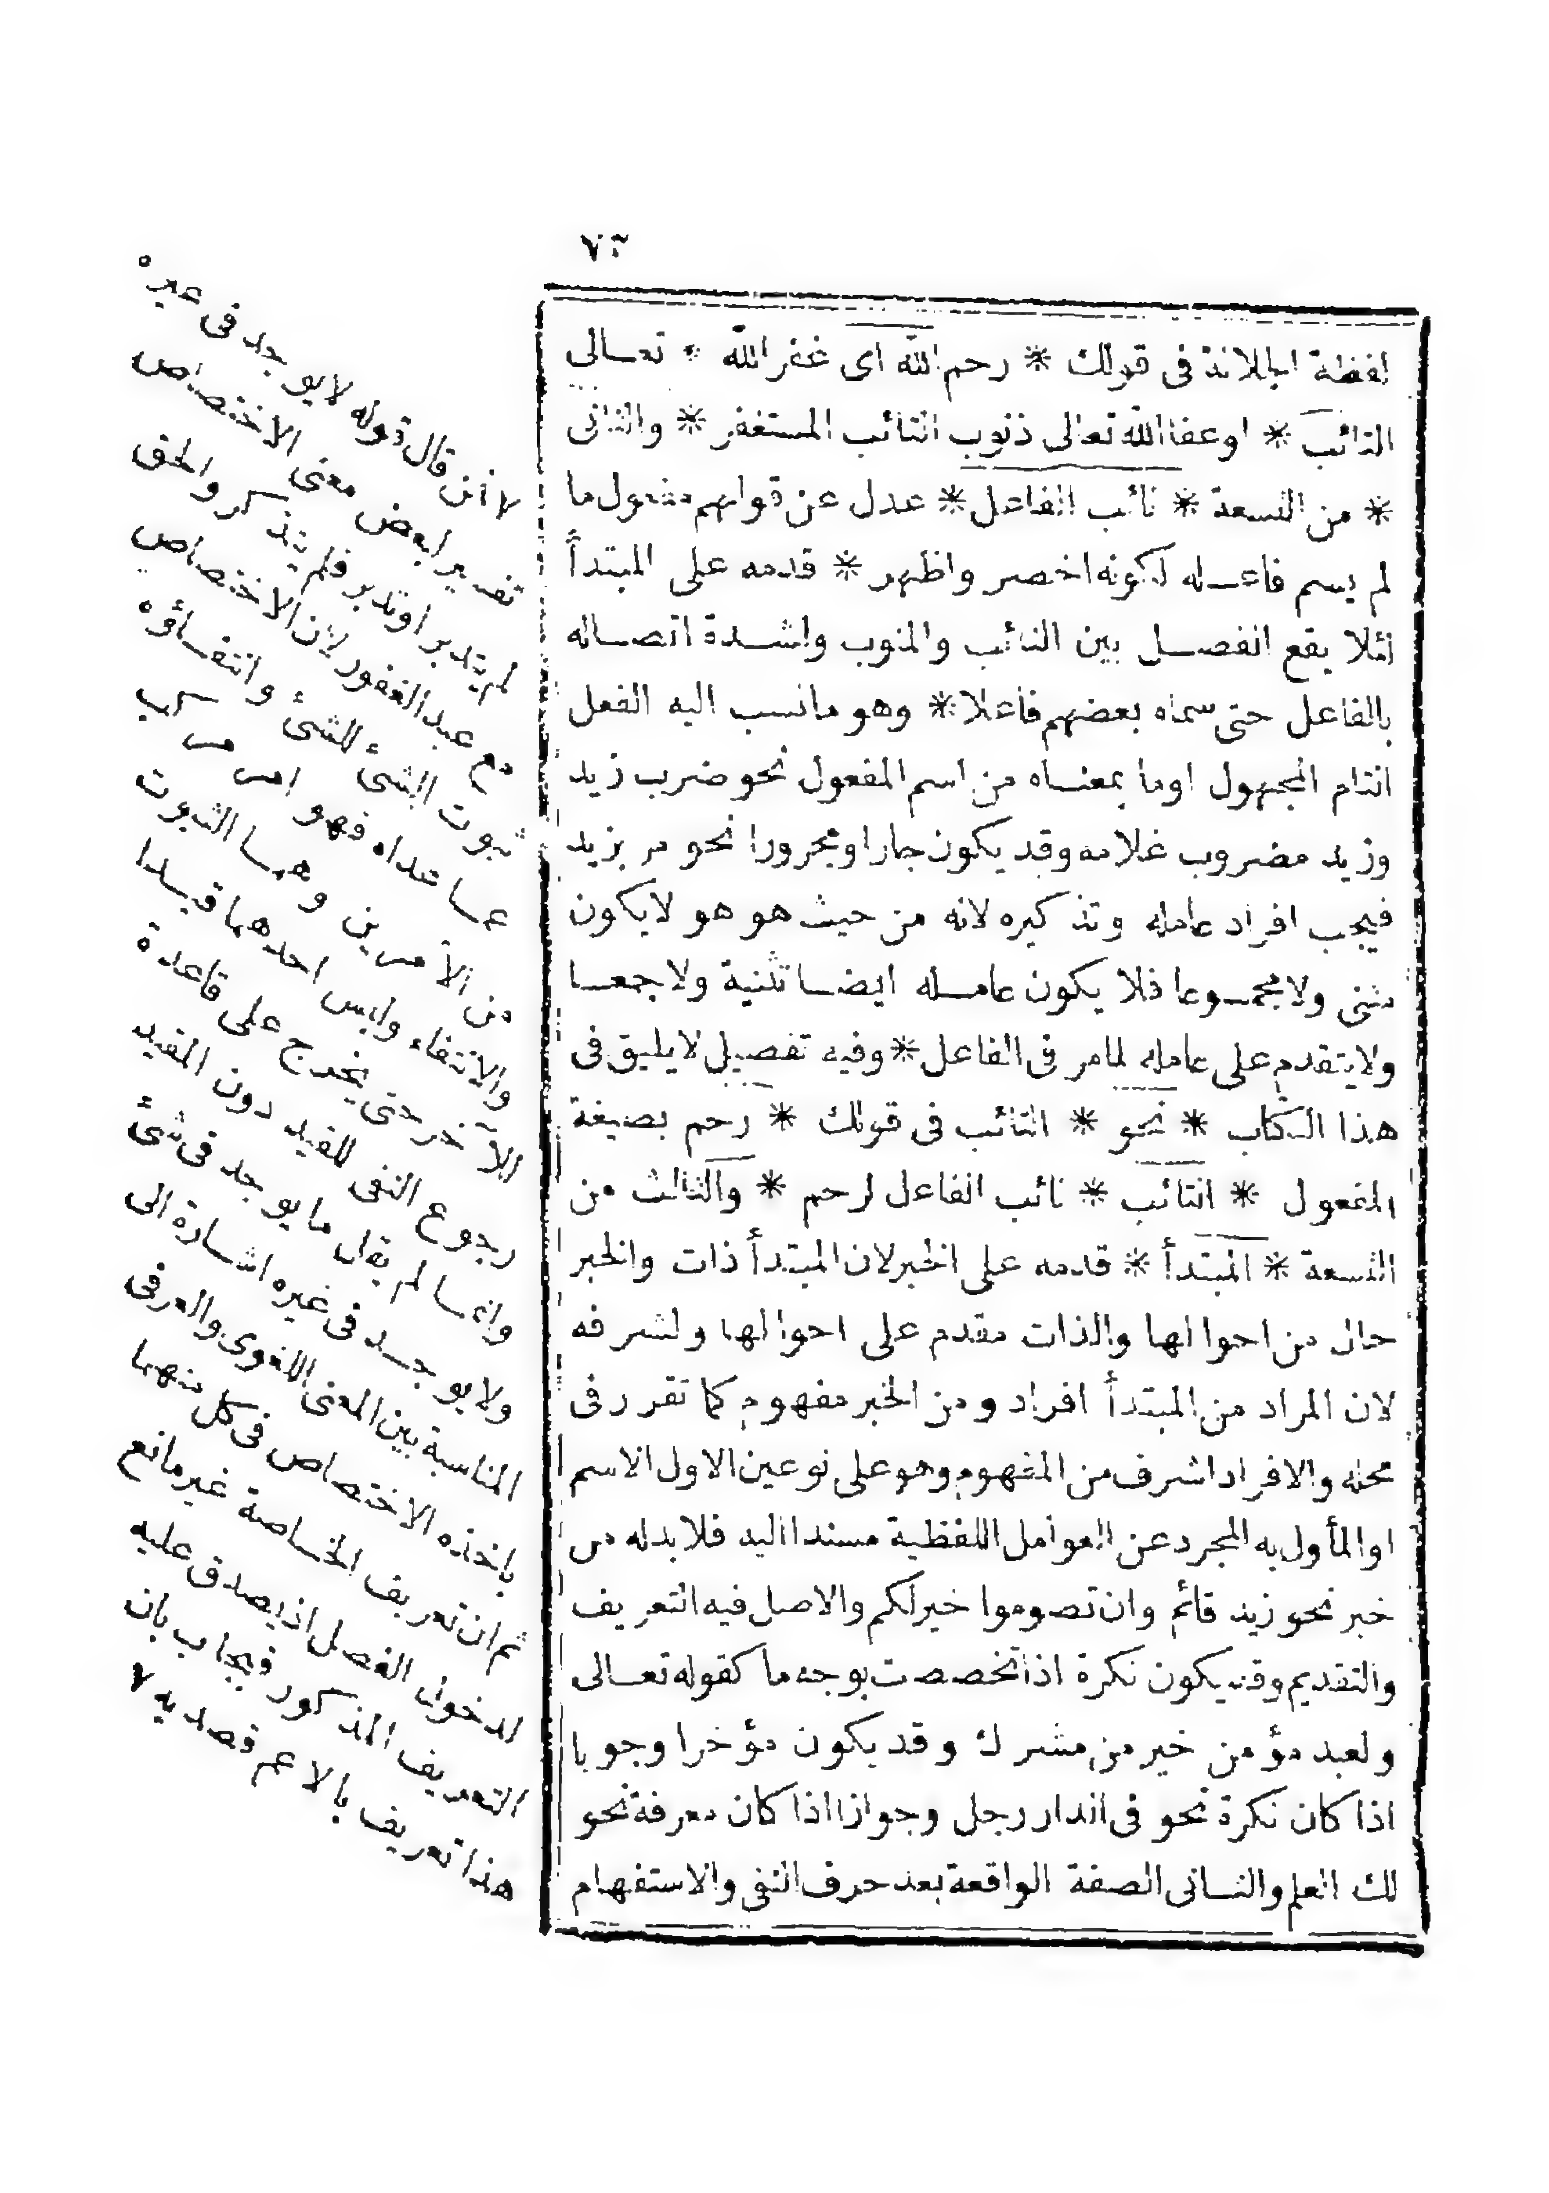 ٧٣
لفظة الجلالة فى قولك * رحم الله اى غفر الله * تعالى
التائب * او عفا الله تعالى ذنوب التائب المستغفر * والثانى
* من التسعة * نائب الفاعل * عدل عن قولهم مفعول ما
لم يسم فاعله لكونه اخصر واظهر * قدمه على المبتدأ
لئلا يقع الفصل بين النائب والمنوب ولشدة اتصاله
بالفاعل حتى سماه بعضهم فاعلا * وهو ما نسب اليه الفعل
التام المجهول او ما بمعناه من اسم المفعول نحو ضرب زيد
وزيد مضروب غلامه وقد يكون جارا ومجرورا نحو مر بزيد
فيجب افراد عامله وتذكيره لانه من حيث هو هو لا يكون
مثنى ولا مجموعا فلا يكون عامله ايضا تثنية ولا جمعا
ولا يتقدم على عامله لما مر فى الفاعل * وفيه تفصيل لا يليق فى
هذا الكتاب * نحو * التائب فى قولك * رحم بصيغة
المفعول * التائب * نائب الفاعل لرحم * والثالث من
التسعة * المبتدأ * قدمه على الخبر لان المبتدأ ذات والخبر
حال من احوالها والذات مقدم على احوالها ولشرفه
لان المراد من المبتدأ افراد ومن الخبر مفهوم كما تقرر فى
محله والافراد اشرف من المفهوم وهو على نوعين الاول الاسم
او المأول به المجرد عن العوامل اللفظية مسندا اليه فلا بد له من
خبر نحو زيد قائم وان تصوموا خير لكم والاصل فيه التعريف
والتقديم وقد يكون نكرة اذا تخصصت بوجه ما كقوله تعالى
ولعبد مؤمن خير من مشرك وقد يكون مؤخرا وجوبا
اذا كان نكرة نحو فى الدار رجل وجوازا اذا كان معرفة نحو
لك العلم والثانى الصفة الواقعة بعد حرف النفى والاستفهام
لا من قال قوله لا يوجد فى غيره
تفسير لبعض معنى الاختصاص
لم يتدبر او تدبر فلم يتذكر والحق
مع عبد الغفور لان الاختصاص
ثبوت الشئ للشئ وانتفاؤه
عما عداه فهو امر مركب
من الأمرين وهما الثبوت
والانتفاء وليس احدهما قيدا
الآخر حتى يخرج على قاعدة
رجوع النفى للقيد دون المقيد
وانما لم يقل ما يوجد فى شئ
ولا يوجد فى غيره اشارة الى
المناسبة بين المعنى اللغوى والعرفى
باخذه الاختصاص فى كل منهما
ثم ان تعريف الخاصة غير مانع
لدخول الفصل اذ يصدق عليه
التعريف المذكور فيجاب بان
هذا تعريف بالاعم قصد به ٧